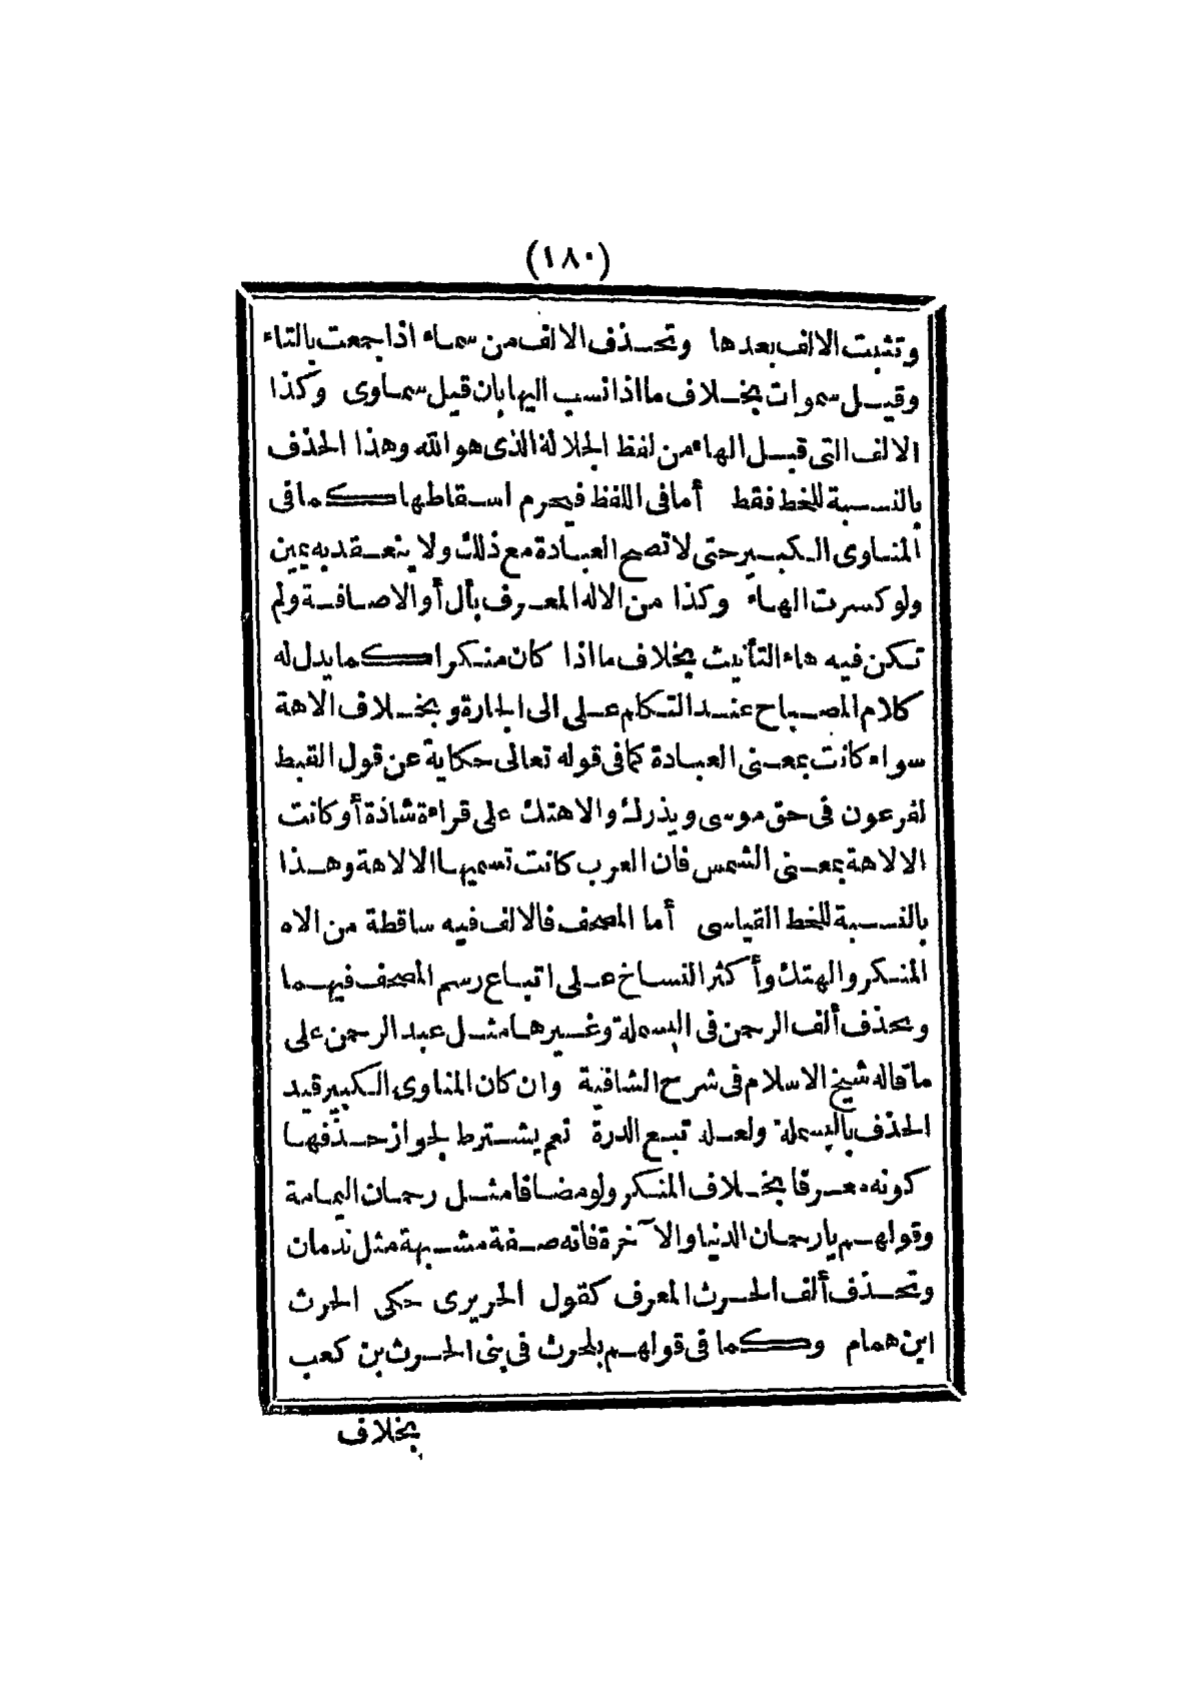 (١٨٠)
وتثبت الالف بعدها وتحذف الالف من سماء اذا جمعت بالتاء
وقيل سموات بخلاف ما اذا نسب اليها بان قيل سماوى وكذا
الالف التى قبل الهاء من لفظ الجلالة الذى هو الله وهذا الحذف
بالنسبة للخط فقط أما فى اللفظ فيحرم اسقاطها كما فى
المناوى الكبير حتى لا تصح العبادة مع ذلك ولا ينعقد به يمين
ولو كسرت الهاء وكذا من الاله المعرف بأل أو الاضافة ولم
تكن فيه هاء التأنيث بخلاف ما اذا كان منكرا كما يدل له
كلام المصباح عند التكلم على الى الجارة وبخلاف الاهة
سواء كانت بمعنى العبادة كما فى قوله تعالى حكاية عن قول القبط
لفرعون فى حق موسى ويذرك والاهتك على قراءة شاذة أو كانت
الالاهة بمعنى الشمس فان العرب كانت تسميها الالاهة وهذا
بالنسبة للخط القياسى أما المصحف فالالف فيه ساقطة من الاه
المنكر والهتك وأكثر النساخ على اتباع رسم المصحف فيهما
ويحذف ألف الرحمن فى البسملة وغيرها مثل عبد الرحمن على
ما قاله شيخ الاسلام فى شرح الشافية وان كان المناوى الكبير قيد
الحذف بالبسملة ولعله تبع الدرة نعم يشترط لجواز حذفها
كونه معرفا بخلاف المنكر ولو مضافا مثل رحمان اليمامة
وقولهم يا رحمان الدنيا والآخرة فانه صفة مشبهة مثل ندمان
وتحذف ألف الحرث المعرف كقول الحريرى حكى الحرث
ابن همام وكما فى قولهم بلحرث فى بنى الحرث بن كعب
بخلاف